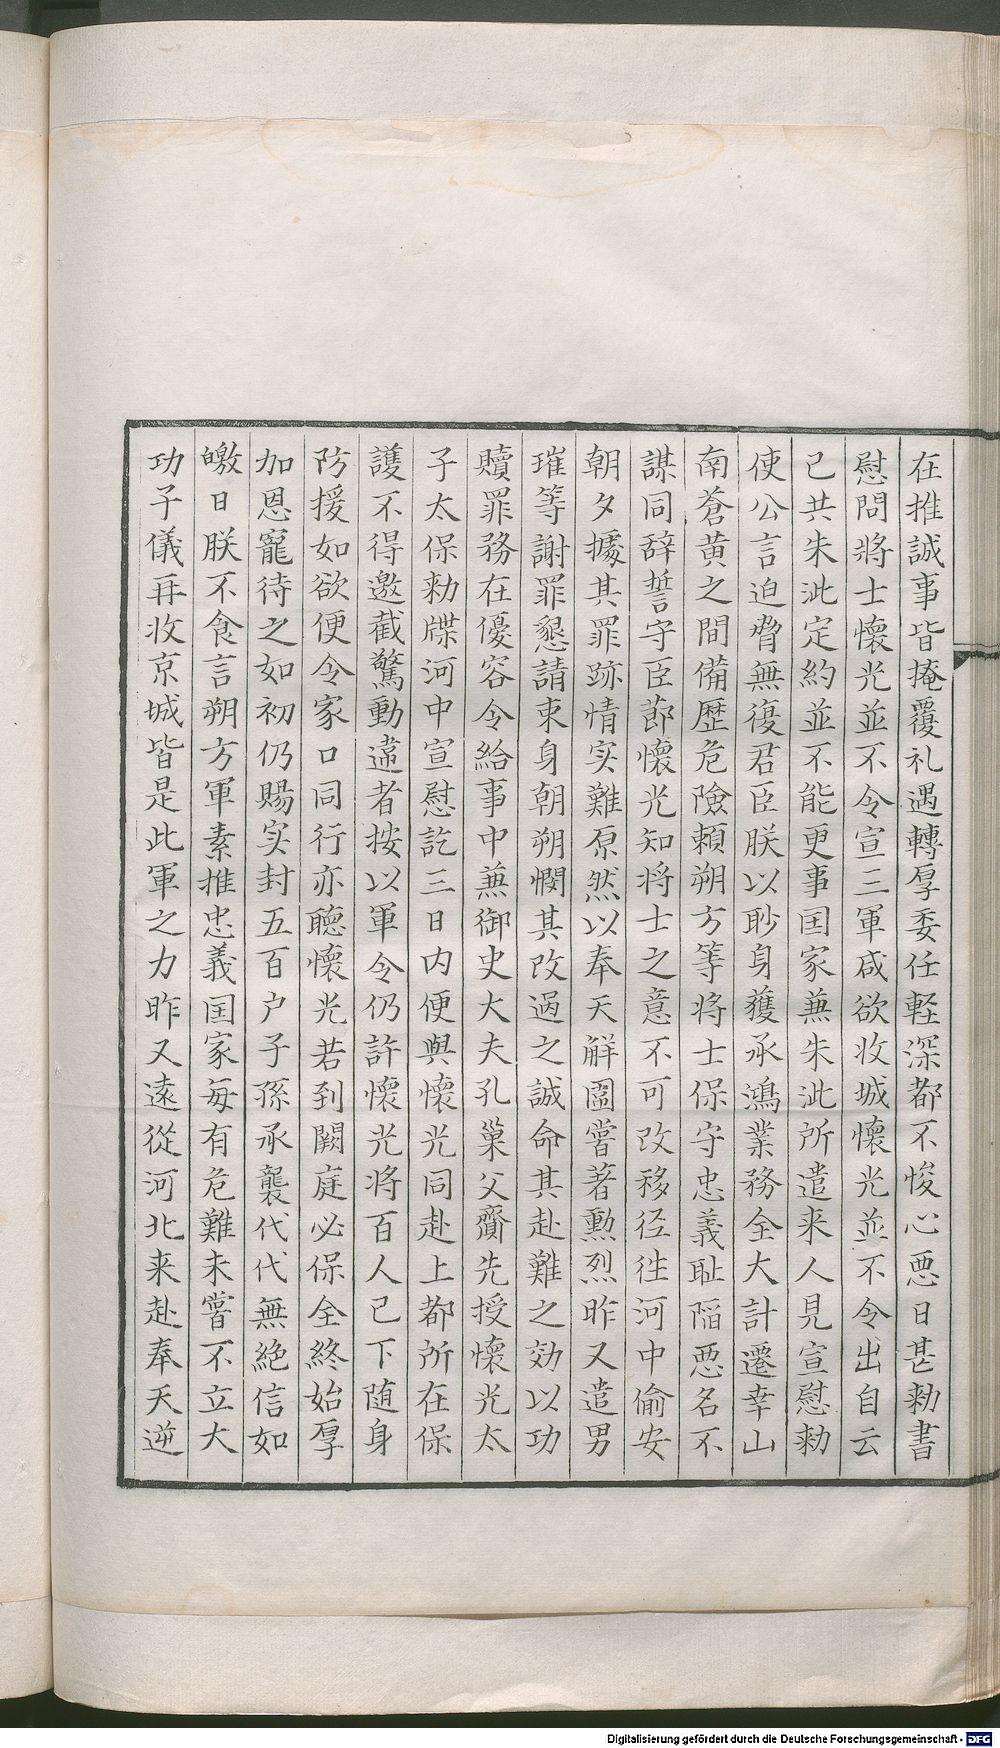 在推誠事皆掩覆礼遇轉厚委任軽深都不悛心悪日甚勑書
慰問將士懷光並不令宣三軍咸欲收城懷光並不令出自云
已共朱泚定約並不能更事国家兼朱泚所遣来人見宣慰勑
使公言迫脅無復君臣朕以眇身獲承鴻業務全大計遷幸山
南蒼黄之間備歴危險頼朔方等将士保守忠義耻陥悪名不
謀同辞誓守臣莭懷光知将士之意不可改移径往河中偷安
朝夕據其罪跡情实難原然以奉天解圍嘗著勳烈昨又遣男
璀等謝罪懇請束身朝朔憫其改過之誠命其赴難之効以功
贖罪務在優容令給事中兼御史大夫孔巢父齎先授懷光太
子太保勑牒河中宣慰訖三日内便與懷光同赴上都所在保
護不得邀截驚動違者按以軍令仍許懷光将百人已下随身
防援如欲便令家口同行亦聴懷光若到闕庭必保全終始厚
加恩寵待之如初仍賜实封五百户子孫承襲代代無絶信如
皦日朕不食言朔方軍素推忠義国家毎有危難未嘗不立大
功子儀再收京城皆是此軍之力昨又逺從河北来赴奉天逆
Digitalisierung gefördert durch die Deutsche Forschungsgemeinschaft - DFG